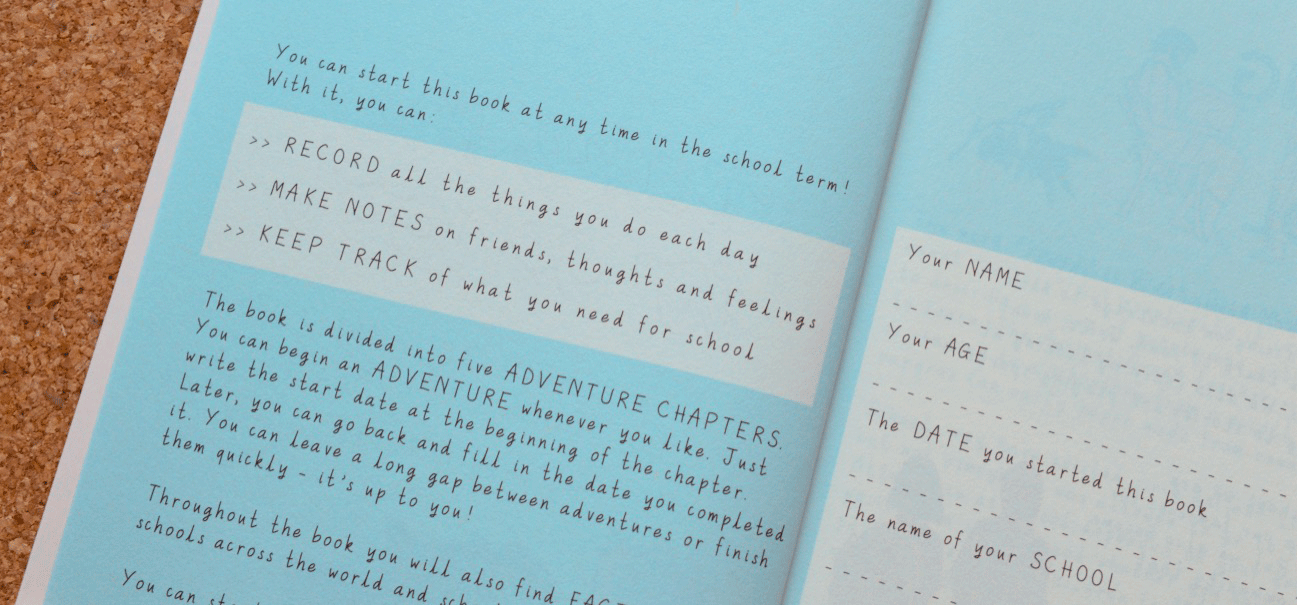 You can start this book at any time in the school term!
With it, you can:
>> RECORD all the things you do each day
>> MAKE NOTES on friends, thoughts and feelings
>> KEEP TRACK of what you need for school
The book is divided into five ADVENTURE CHAPTERS.
You can begin an ADVENTURE whenever you like. Just
write the start date at the beginning of the chapter.
Later, you can go back and fill in the date you completed
it. You can leave a long gap between adventures or finish
them quickly – it's up to you!
Throughout the book you will also find
schools across the world and
You can
Your NAME
Your AGE
The DATE you started this book
The name of your SCHOOL